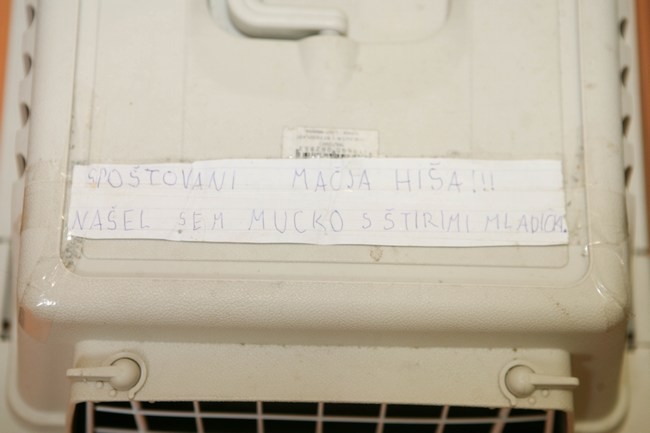 SPOŠTOVANI MAČJA HIŠA!!!
NAŠEL SEM MUCKO S ŠTIRIMI MLADIČKI.